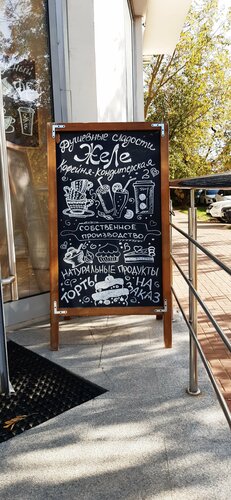 Душевные сладости
ЖеЛе
Кофейня-кондитерская
СОБСТВЕННОЕ
ПРОИЗВОДСТВО
НАТУРАЛЬНЫЕ ПРОДУКТЫ
ТОРТЫ НА
ЗАКАЗ